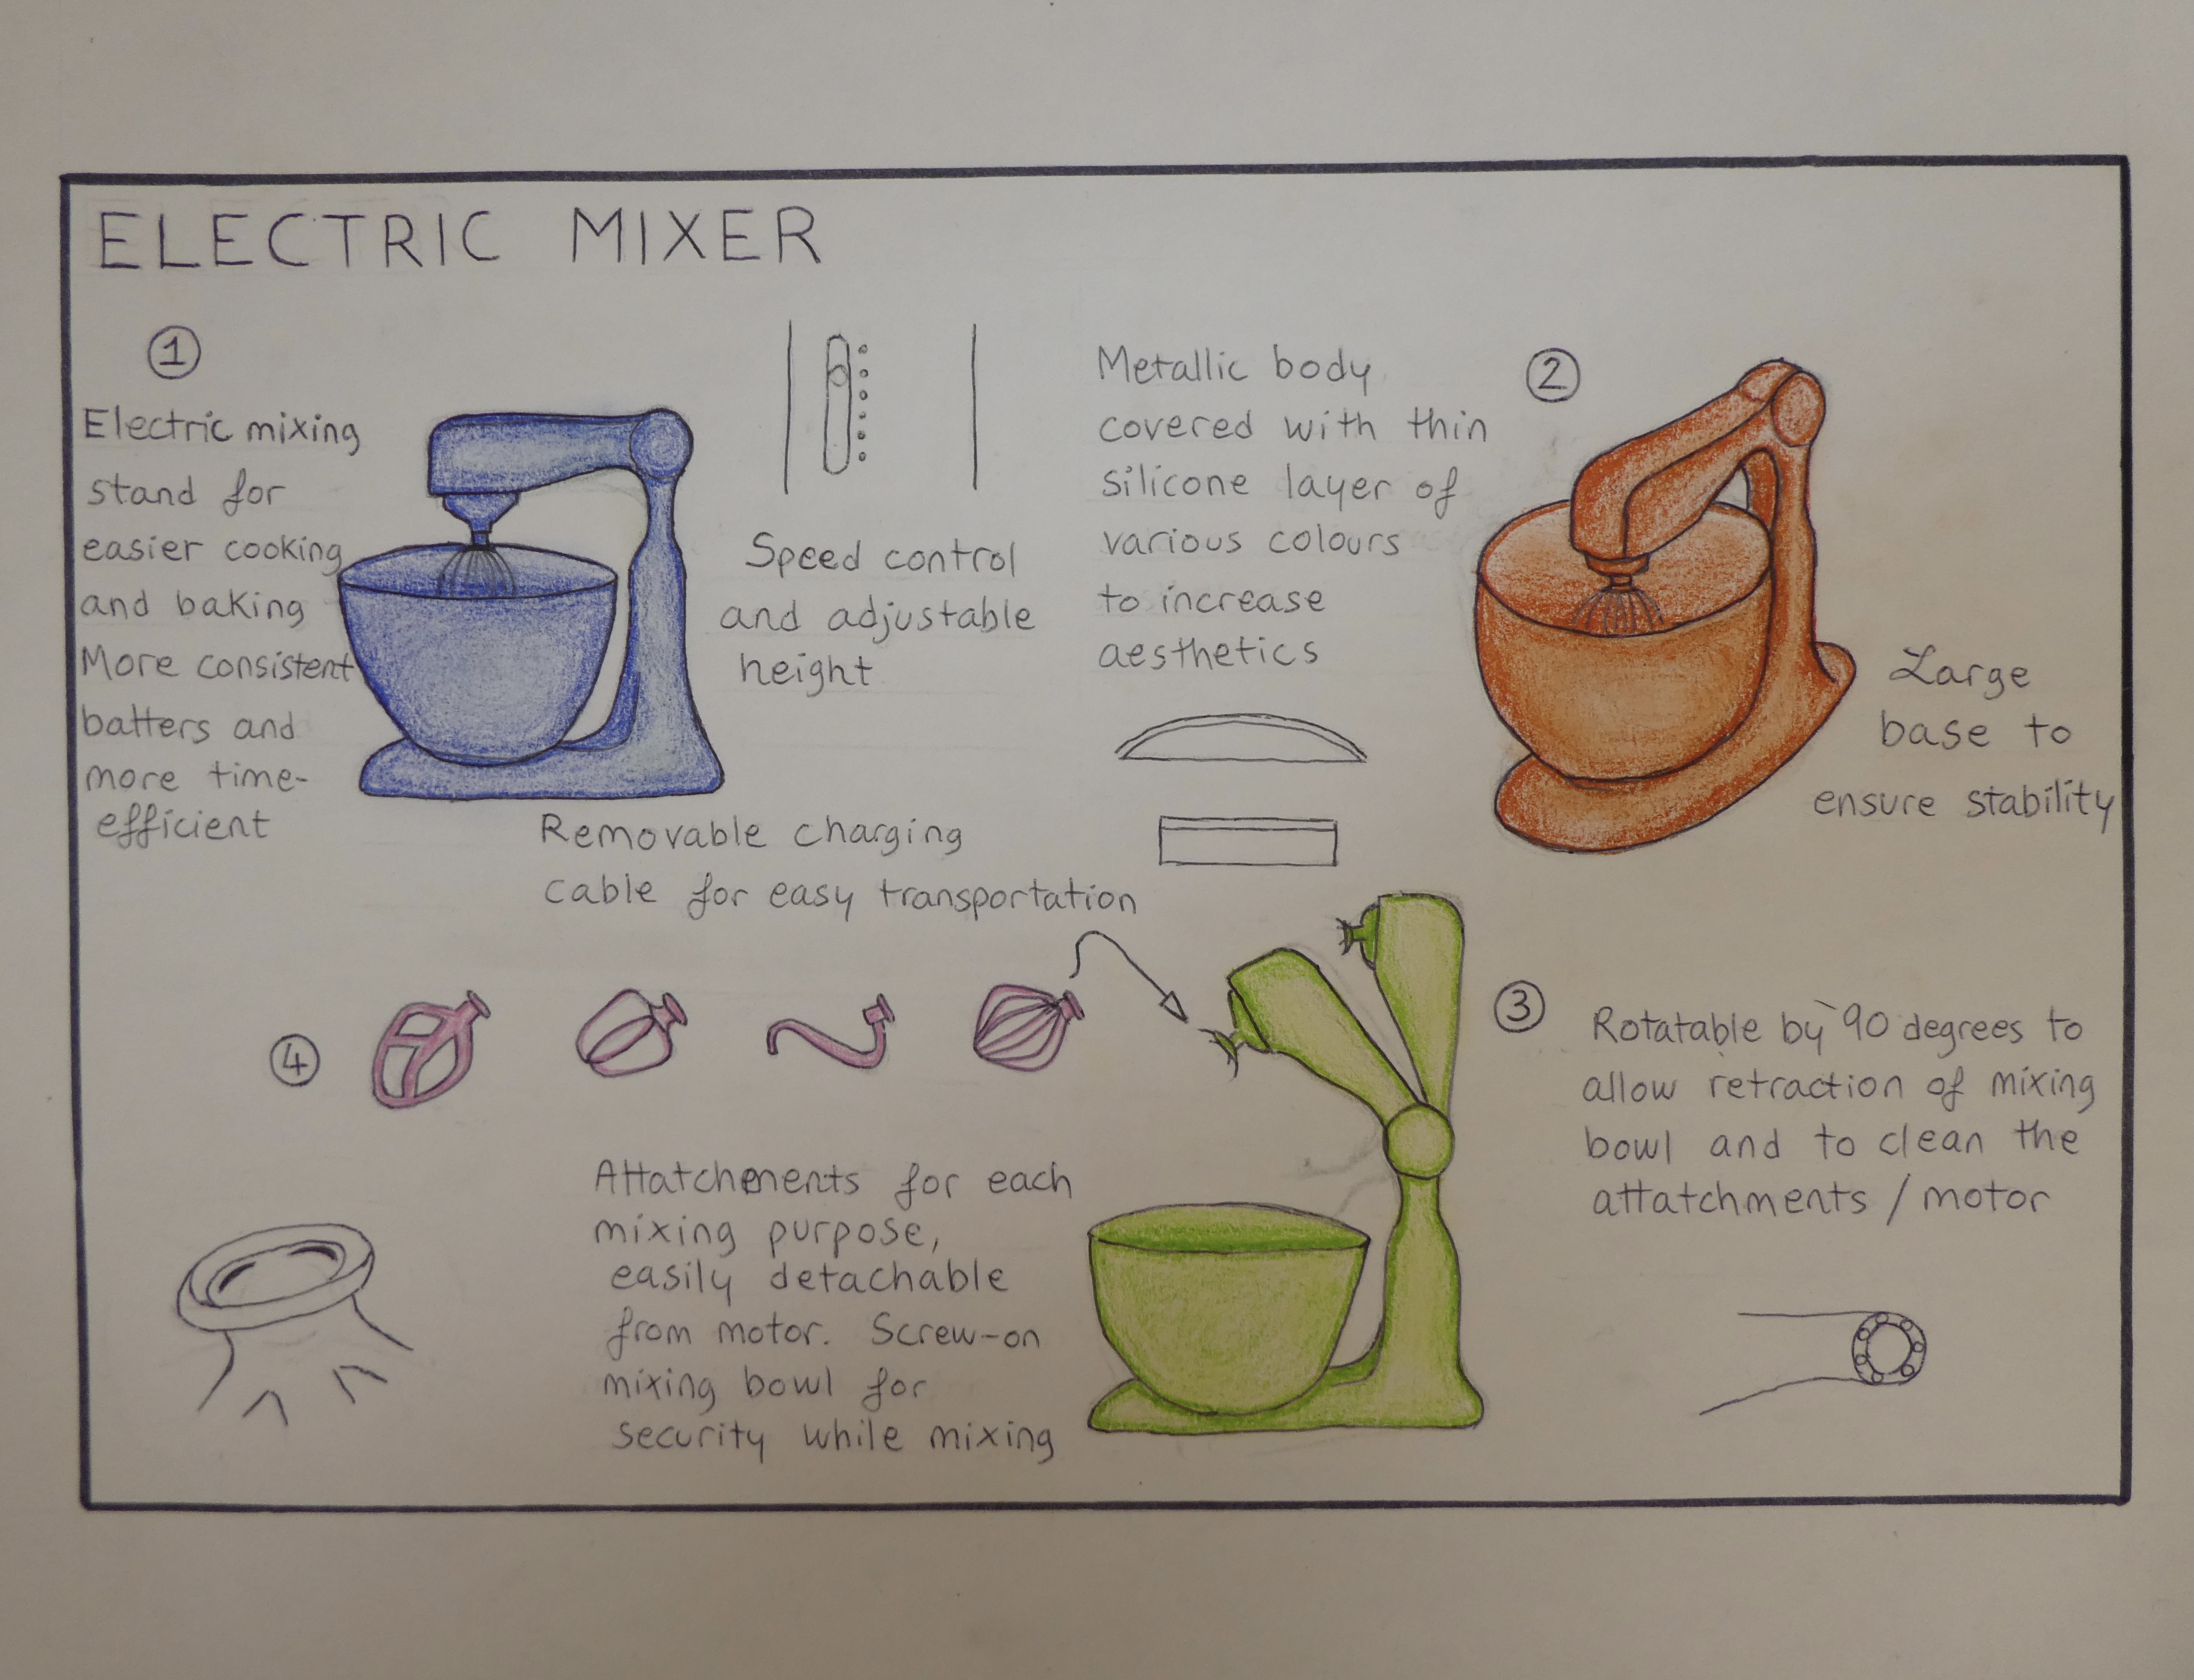 ELECTRIC MIXER
1
Electric mixing
stand for
easier cooking
and baking
More consistent
batters and
more time-
efficient
Speed control
and adjustable
height
Removable charging
cable for easy transportation
Metallic body
covered with thin
silicone layer of
various colours
to increase
aesthetics
2
Large
base to
ensure stability
3
Rotatable by 90 degrees to
allow retraction of mixing
bowl and to clean the
attatchments / motor
4
Attatchments for each
mixing purpose,
easily detachable
from motor. Screw-on
mixing bowl for
security while mixing